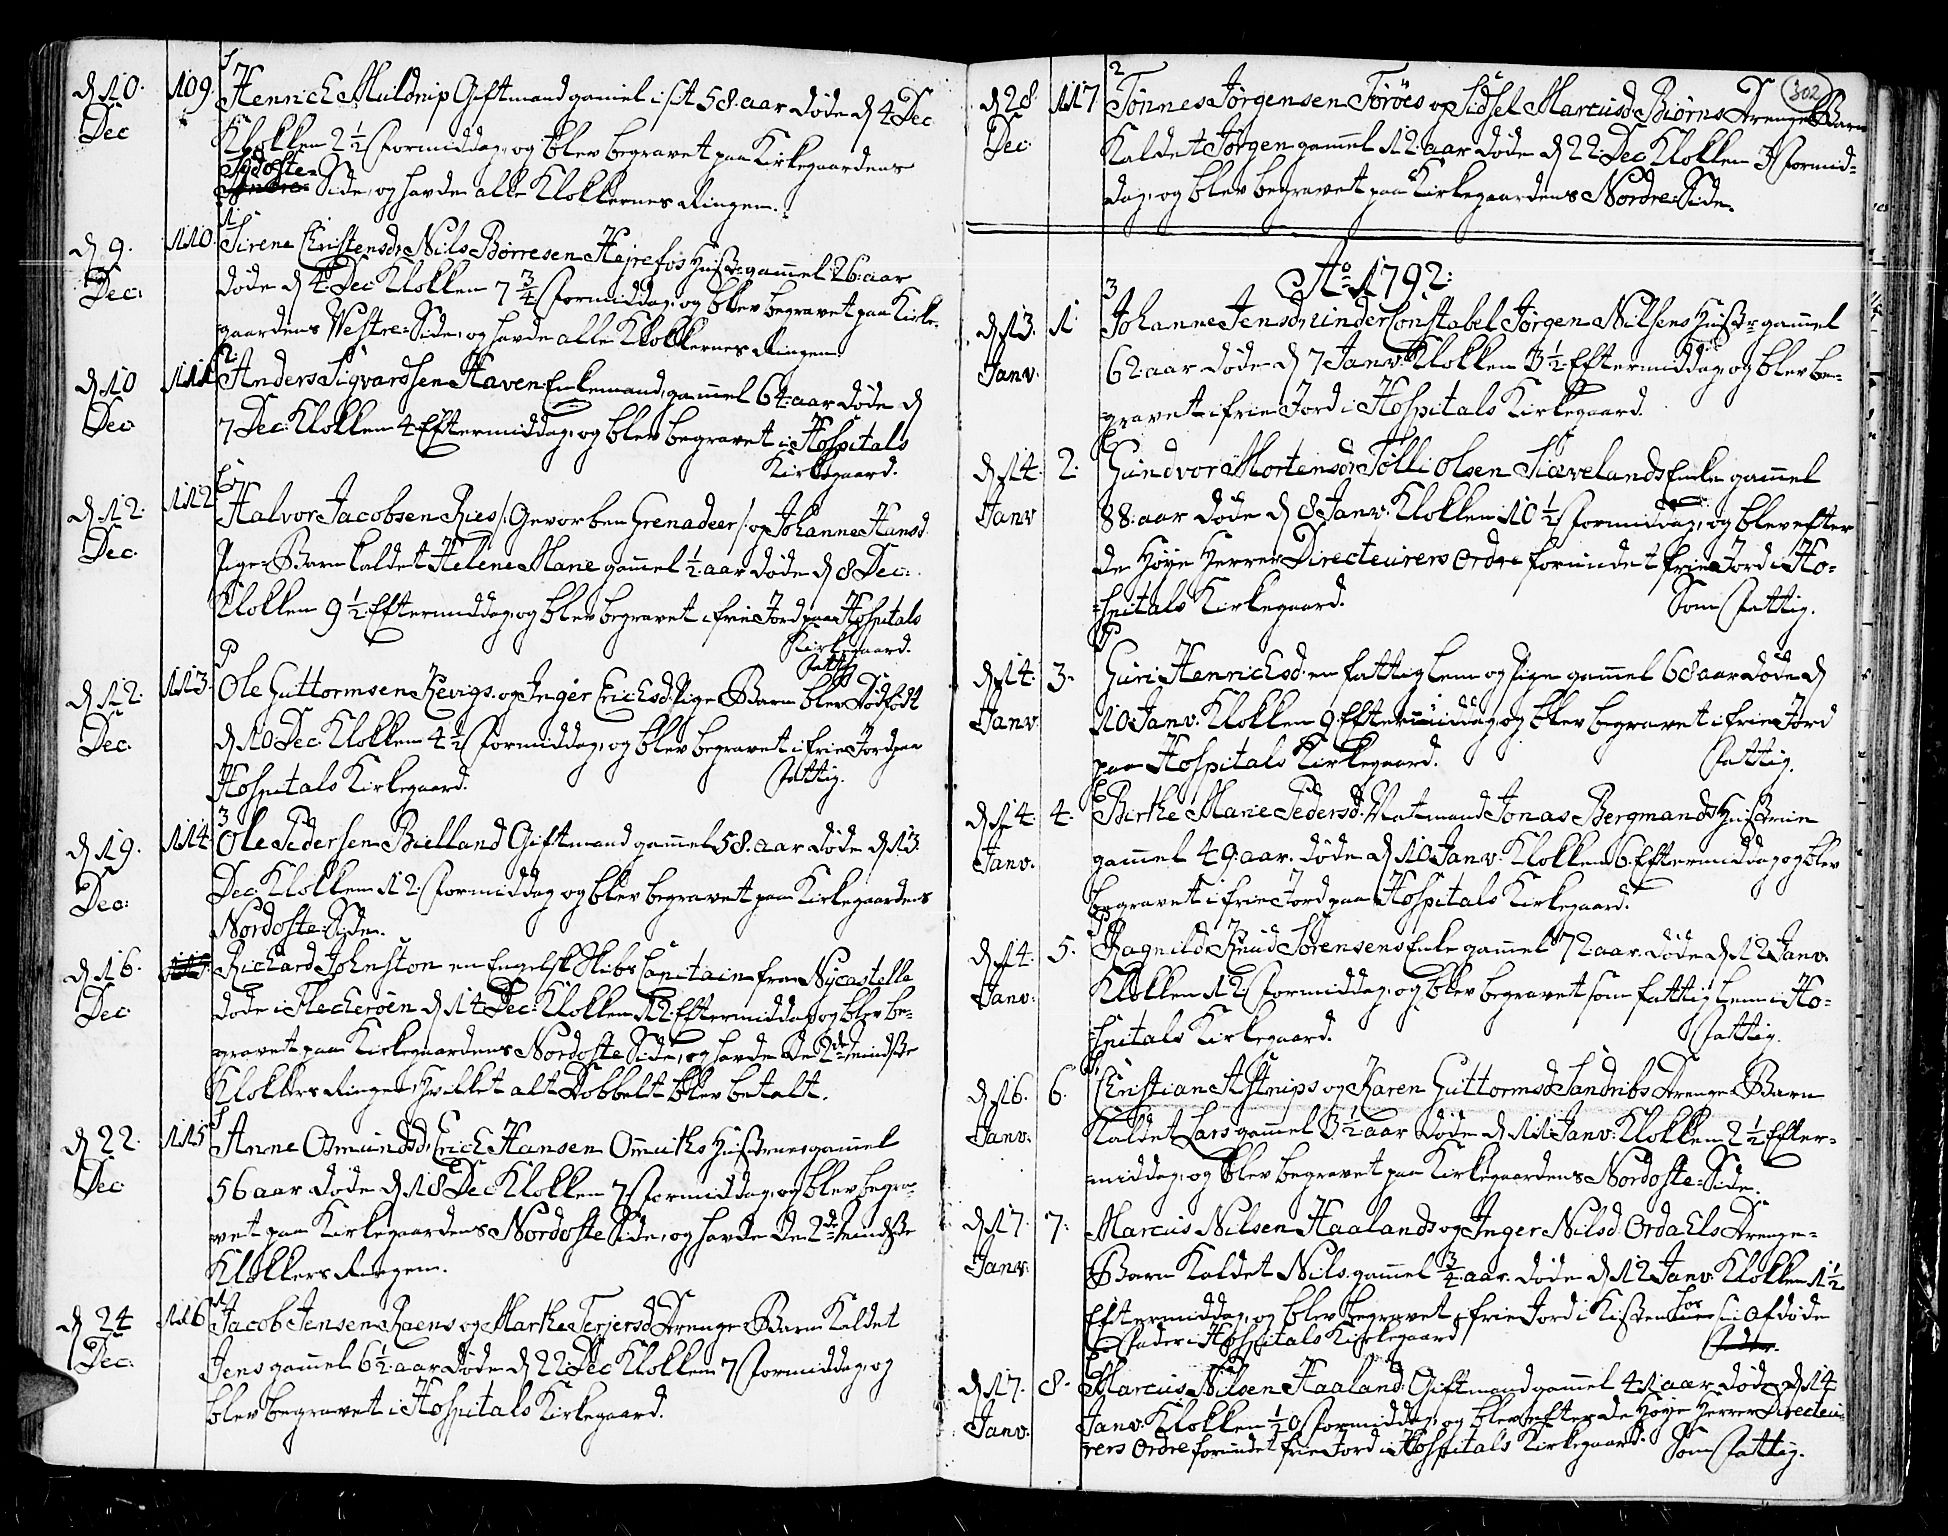 d 10. Dec 109. Henrich Muldrup Giftmand gamel i sit 58. aar døde d 4 Dec
Klokken 2½ Formiddag, og blev begravet paa Kirkegaardens
Sydoste
Side, og havde alle Klokkernes Ringen.
d 9. Dec: 110. Sirene Christensdr Nils Børresen Hejrefos Hußr: gamel 26: aar
døde d 4 Dec Klokken 7¾ Formiddag, og blev begravet paa Kirke-
gaardens Vestre Side, og havde alle Klokkernes Ringen
d 10 Dec. 111 Anders Sigvardsen Haven Enkemand, gamel 64: aar døde d
7 Dec: Klokken 4 Eftermiddag, og blev begravet i Hospitals
Kirkegaard.
d 12. Dec. 112 Halvor Jacobsen Ries /: Gevorben Grenadeer :/ og Johanne Hansd.
Pige Barn kaldet Helene Marie gamel ½ aar døde d 8 Dec:
Klokken 9½ Eftermiddag, og blev begravet i frie Jord paa Hospitals
Kirkegaard.
Fattig
d 12. Dec. 113. Ole Guttormsen Kevigs. og Inger Erichsd: Pige Barn blev Dødfødt
d 10 Dec: Klokken 4½ Formiddag, og blev begravet i frie Jord paa
Hospitals Kirkegaard. Fattig.
d 19. Dec: 114 Ole Pedersen Bielland Giftmand gamel 58. aar døde d 13.
Dec: Klokken 12 Formiddag og blev begravet paa Kirkegaardens
Nordoste Side.
d 16. Dec Richard Johnston en Engelsk Skibs Capitain fra Nycastelle
døde i Fleckerøen d 14 Dec: Klokken 12 Eftermiddag og blev be-
gravet paa Kirkegaardens Nordoste Side, og havde De 2de mindste
Klokkers Ringen, hvilket alt Dobbelt blev betalt.
d 22. Dec 115 Anne Osmundsd: Erich Hansen Omuths Hußtrue gamel
56 aar døde d 18 Dec Klokken 7 Formiddag, og blev begra-
vet paa Kirkegaardens Nordoste Side, og havde De 2de mindste
Klokkers Ringen.
d 24 Dec: 116 Jacob Jensen Raens og Marthe Terjersd: Drenge Barn Kaldet
Jens gamel 6½ aar døde d 22 Dec Klokken 7 Formiddag, og
blev begravet i Hospitals Kirkegaard.
302
d 28 Dec: 117 Tønnes Jørgensen Torøes og Sidsel Marcusd: Biørns Drenge Barn
Kaldet Jørgen gamel 12: aar døde d 22: Dec Klokken 3 Formid-
dag, og blev begravet paa Kirkegaardens Nordre Side.
Ao 1792:
d 13. Janv: 1 Johanne Jensdr, under Constabel Jørgen Nilsens Hußtr: gamel
62: aar døde d 7 Janv: Klokken 3½ Eftermiddag, og blev be-
gravet i frie Jord i Hospitals Kirkegaard.
d 14. Janv 2. Gundvor Mortensdr Tolli Olsen Siævelands Enke gamel
88: aar døde d 8 Janv: Klokken 10½ Formiddag, og blev efter
de Høye Herrer Directeurers Ordre forundet frie Jord i Ho-
spitals Kirkegaard. Som Fattig.
d 14: Janv: 3. Guri Henrichsd: en fattig Lem og Pige gamel 68 aar døde d
10 Janv. Klokken 9 Eftermiddag, og blev begravet i frie Jord
paa Hospitals Kirkegaard. Fattig.
d 14. Janv. 4. Birthe Marie Pedersd: Matmand Jonas Bergmands Hußtrue
gamel 49: aar. døde d 10 Janv: Klokken 6. Eftermiddag og blev
begravet i frie Jord paa Hospitals Kirkegaard.
d 14: Janv: 5. Ragnild Knud Sørensens Enke gamel 72: aar døde d 12 Janv.
Klokken 12 Formiddag, og blev begravet som fattig Lem i Ho-
spitals Kirkegaard. Fattig.
d 16. Janv: 6. Christian Astrups og Karen Guttormsd: Sandvibs Drenge Barn
Kaldet Lars gamel 3½ aar døde d 11 Janv: Klokken 2½ Efter-
middag, og blev begravet paa Kirkegaardens Nordoste Side.
d 17. Janv: 7: Marcus Nilsen Haalands og Inger Nilsd: Ordaels Drenge-
Barn Kaldet Nils. gamel ¾ aar. døde d 12 Janv Klokken 1½
Eftermiddag, og blev begravet i frie Jord i Kisten hos sin afdøde
Fader i Hospitals Kirkegaard
d 17. Janv. 8. Marcus Nilsen Haaland. Giftmand gamel 41 aar døde d 14
Janv: Klokken ½9 Formiddag, og blev efter de Høye Herrer Directeu-
rers Ordre forundet frie Jord i Hospitals Kirkegaard. Som Fattig.